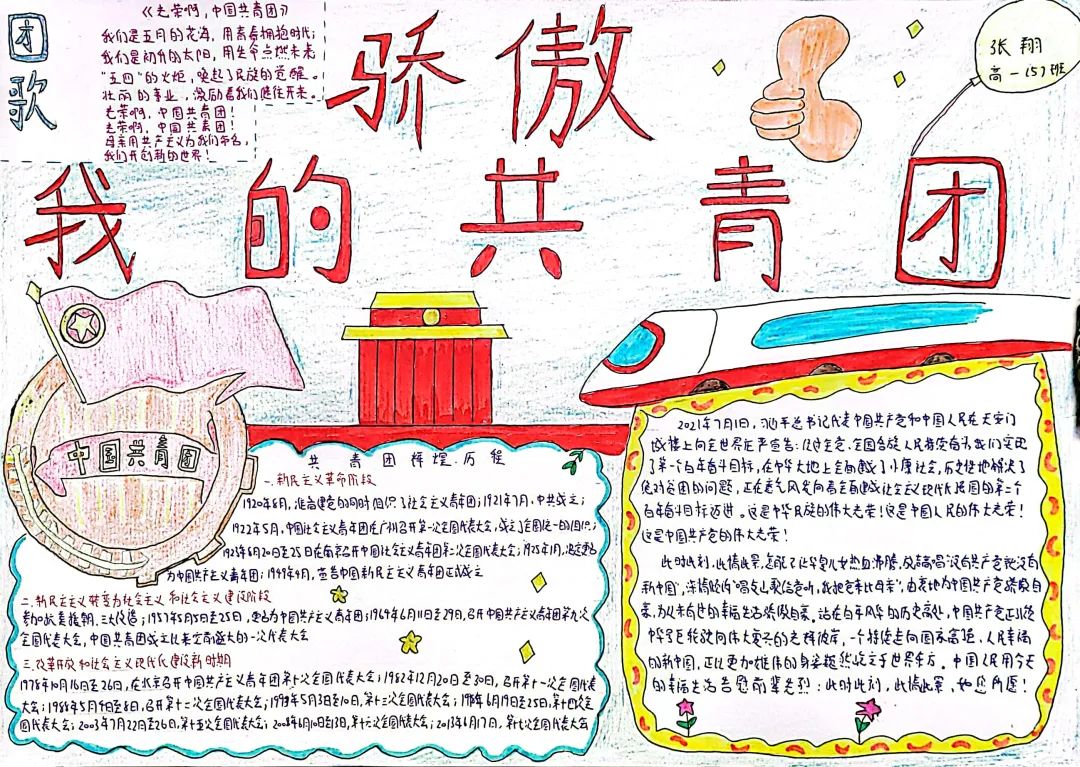 团歌
《光荣啊,中国共青团》
我们是五月的花海,用青春拥抱时代;
我们是初升的太阳,用生命点燃未来
“五四”的火炬,唤起了民族的觉醒。
壮丽的事业,激励着我们继往开来。
光荣啊,中国共青团!
光荣啊,中国共青团!
母亲用共产主义为我们命名,
我们开创新的世界!
骄傲
我的共青团
张翔
高一(5)班
中国共青团
共青团辉煌历程
一.新民主义革命阶段
1920年8月,准备建党的同时组织了社会主义青年团;1921年7月,中共成立;
1922年5月,中国社会主义青年团在广州召开第一次全国代表大会,成立了全国统一的组织;
1923年6月20日至25日在南京召开中国社会主义青年团第二次全国代表大会;1925年1月,决定更名
为中国共产主义青年团;1949年4月,宣告中国新民主主义青年团正式成立
二.新民主主义转变为社会主义和社会主义建设阶段
参加抗美援朝,三大改造;1957年5月5日至25日,更名为中国共产主义青年团;1964年6月11日至29日,召开中国共产主义青年团第九次
全国代表大会,中国共青团成立以来空前盛大的一次代表大会
三.改革开放和社会主义现代化建设新时期
1978年10月16日至26日,在北京召开中国共产主义青年团第十次全国代表大会;1982年12月20日至30日,召开第十一次全国代表
大会;1988年5月4日至8日,召开第十二次全国代表大会;1993年5月3日至10日,第十三次全国代表大会;1998年6月19日至25日,第十四次全
国代表大会;2003年7月22日至26日,第十五次全国代表大会;2008年6月10日至13日,第十六次全国代表大会;2013年6月17日,第十七次全国代表大会
2021年7月1日,习近平总书记代表中国共产党和中国人民在天安门
城楼上向全世界庄严宣告:经过全党、全国各族人民持续奋斗,我们实现
了第一个百年奋斗目标,在中华大地上全面建成了小康社会,历史性地解决了
绝对贫困的问题,正在意气风发向着全面建成社会主义现代化强国的第二个
百年奋斗目标迈进。这是中华民族的伟大光荣!这是中国人民的伟大光荣!
这是中国共产党的伟大光荣!
此时此刻,此情此景,怎能不让华夏儿女热血沸腾,放声高唱“没有共产党就没有
新中国”,深情低吟“唱支山歌给党听,我把党来比母亲”,由衷地为中国共产党感到自
豪,为从未有过的幸福生活感到自豪。站在百年风华的历史高处,中国共产党正以领
中华号巨轮驶向伟大复兴的光辉彼岸,一个持续走向国家富强、人民幸福
的新中国,正以更加雄伟的身姿巍然屹立于世界东方。中国人民用今天
的幸福生活告慰前辈先烈:此时此刻,此情此景,如您所愿!